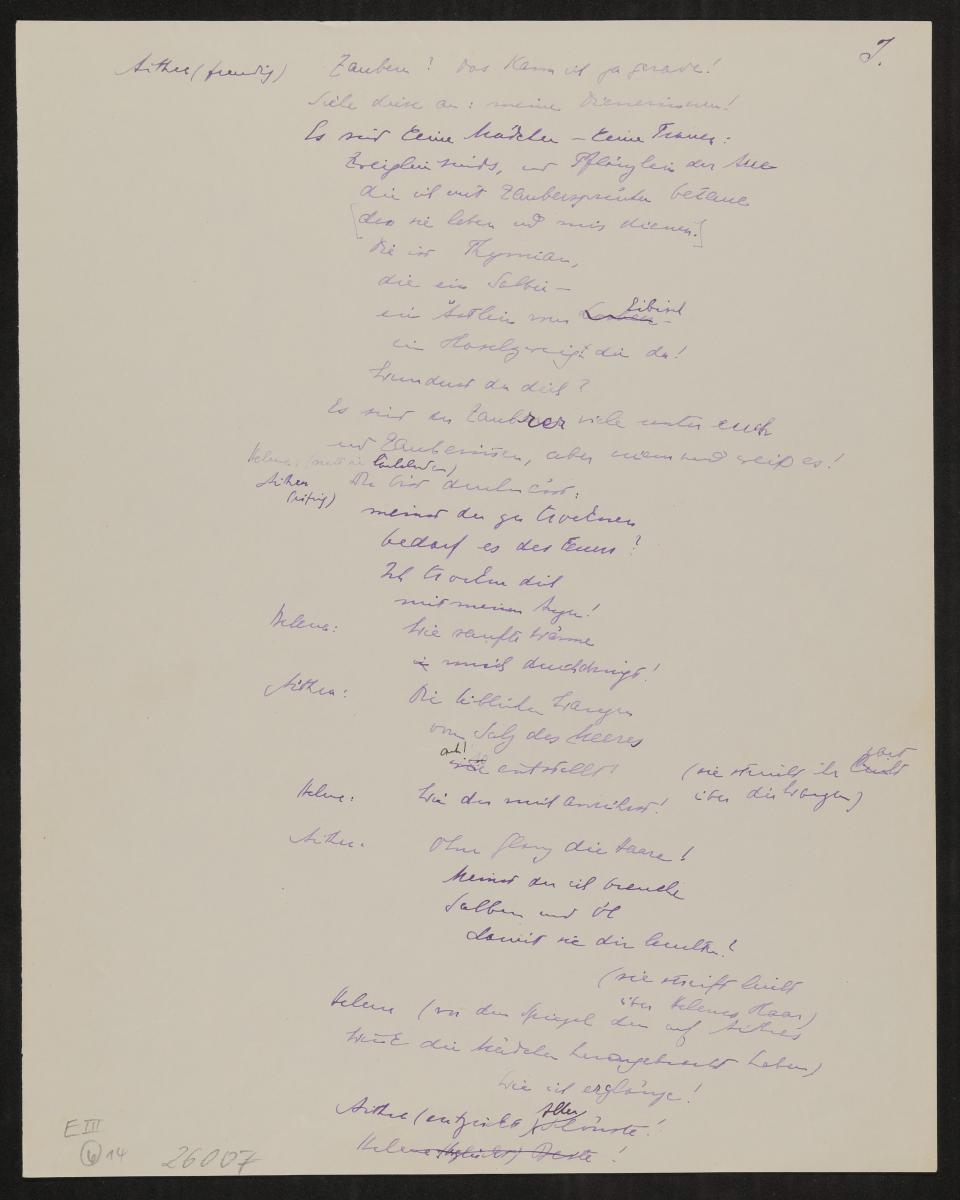 J.
Aithra (freudig) Zaubern? Das kann ich ja gerade!
Sieh diese an: meine Dienerinnen!
Es sind keine Mädchen – keine Frauen:
Zweiglein sinds, und Pflänzlein der Aue
die ich mit Zaubersprüchen betaue
[dass sie leben und mir dienen!]
Die ist Thymian,
die ein Salbei –
ein Ästlein vom Eibisch –
ein Haselzweig die da!
Wunderst du dich?
Es sind der Zauberer viele unter euch
und Zauberinnen, aber niemand weiß es!
Helena:
Aithra Du bist durchnässt:
(eifrig)
meinst du zu trocknen
bedarf es des Feuers?
Ich trockne dich
mit meinen Augen!
Helena: Wie sanfte Wärme
mich durchdringt!
Aithra: Die lieblichen Wangen
vom Salz des Meeres
ach! entstellt! (sie streicht ihr zart
über die Wangen)
Helena: Wie du mich anrührst!
Aithra: Ohne Glanz die Haare!
Meinst du ich brauche
Salben und Öl
damit sie dir leuchten?
(sie streift leicht
über Helenas Haar)
Helena (vor dem Spiegel den auf Aithras
Wink die Mädchen herangebracht haben)
Wie ich erglänze!
Aithra (entzückt) Allerschönste!
Helena Beste!